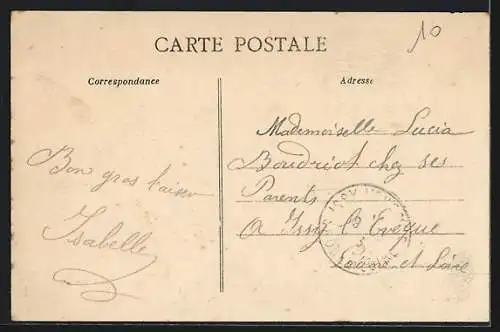 10
CARTE POSTALE
Correspondance
Adresse
Mademoiselle Lucia
Boudriot chez ses
Parents
a Issy l'Evêque
Saone et Loire
Bon gros baiser
Isabelle